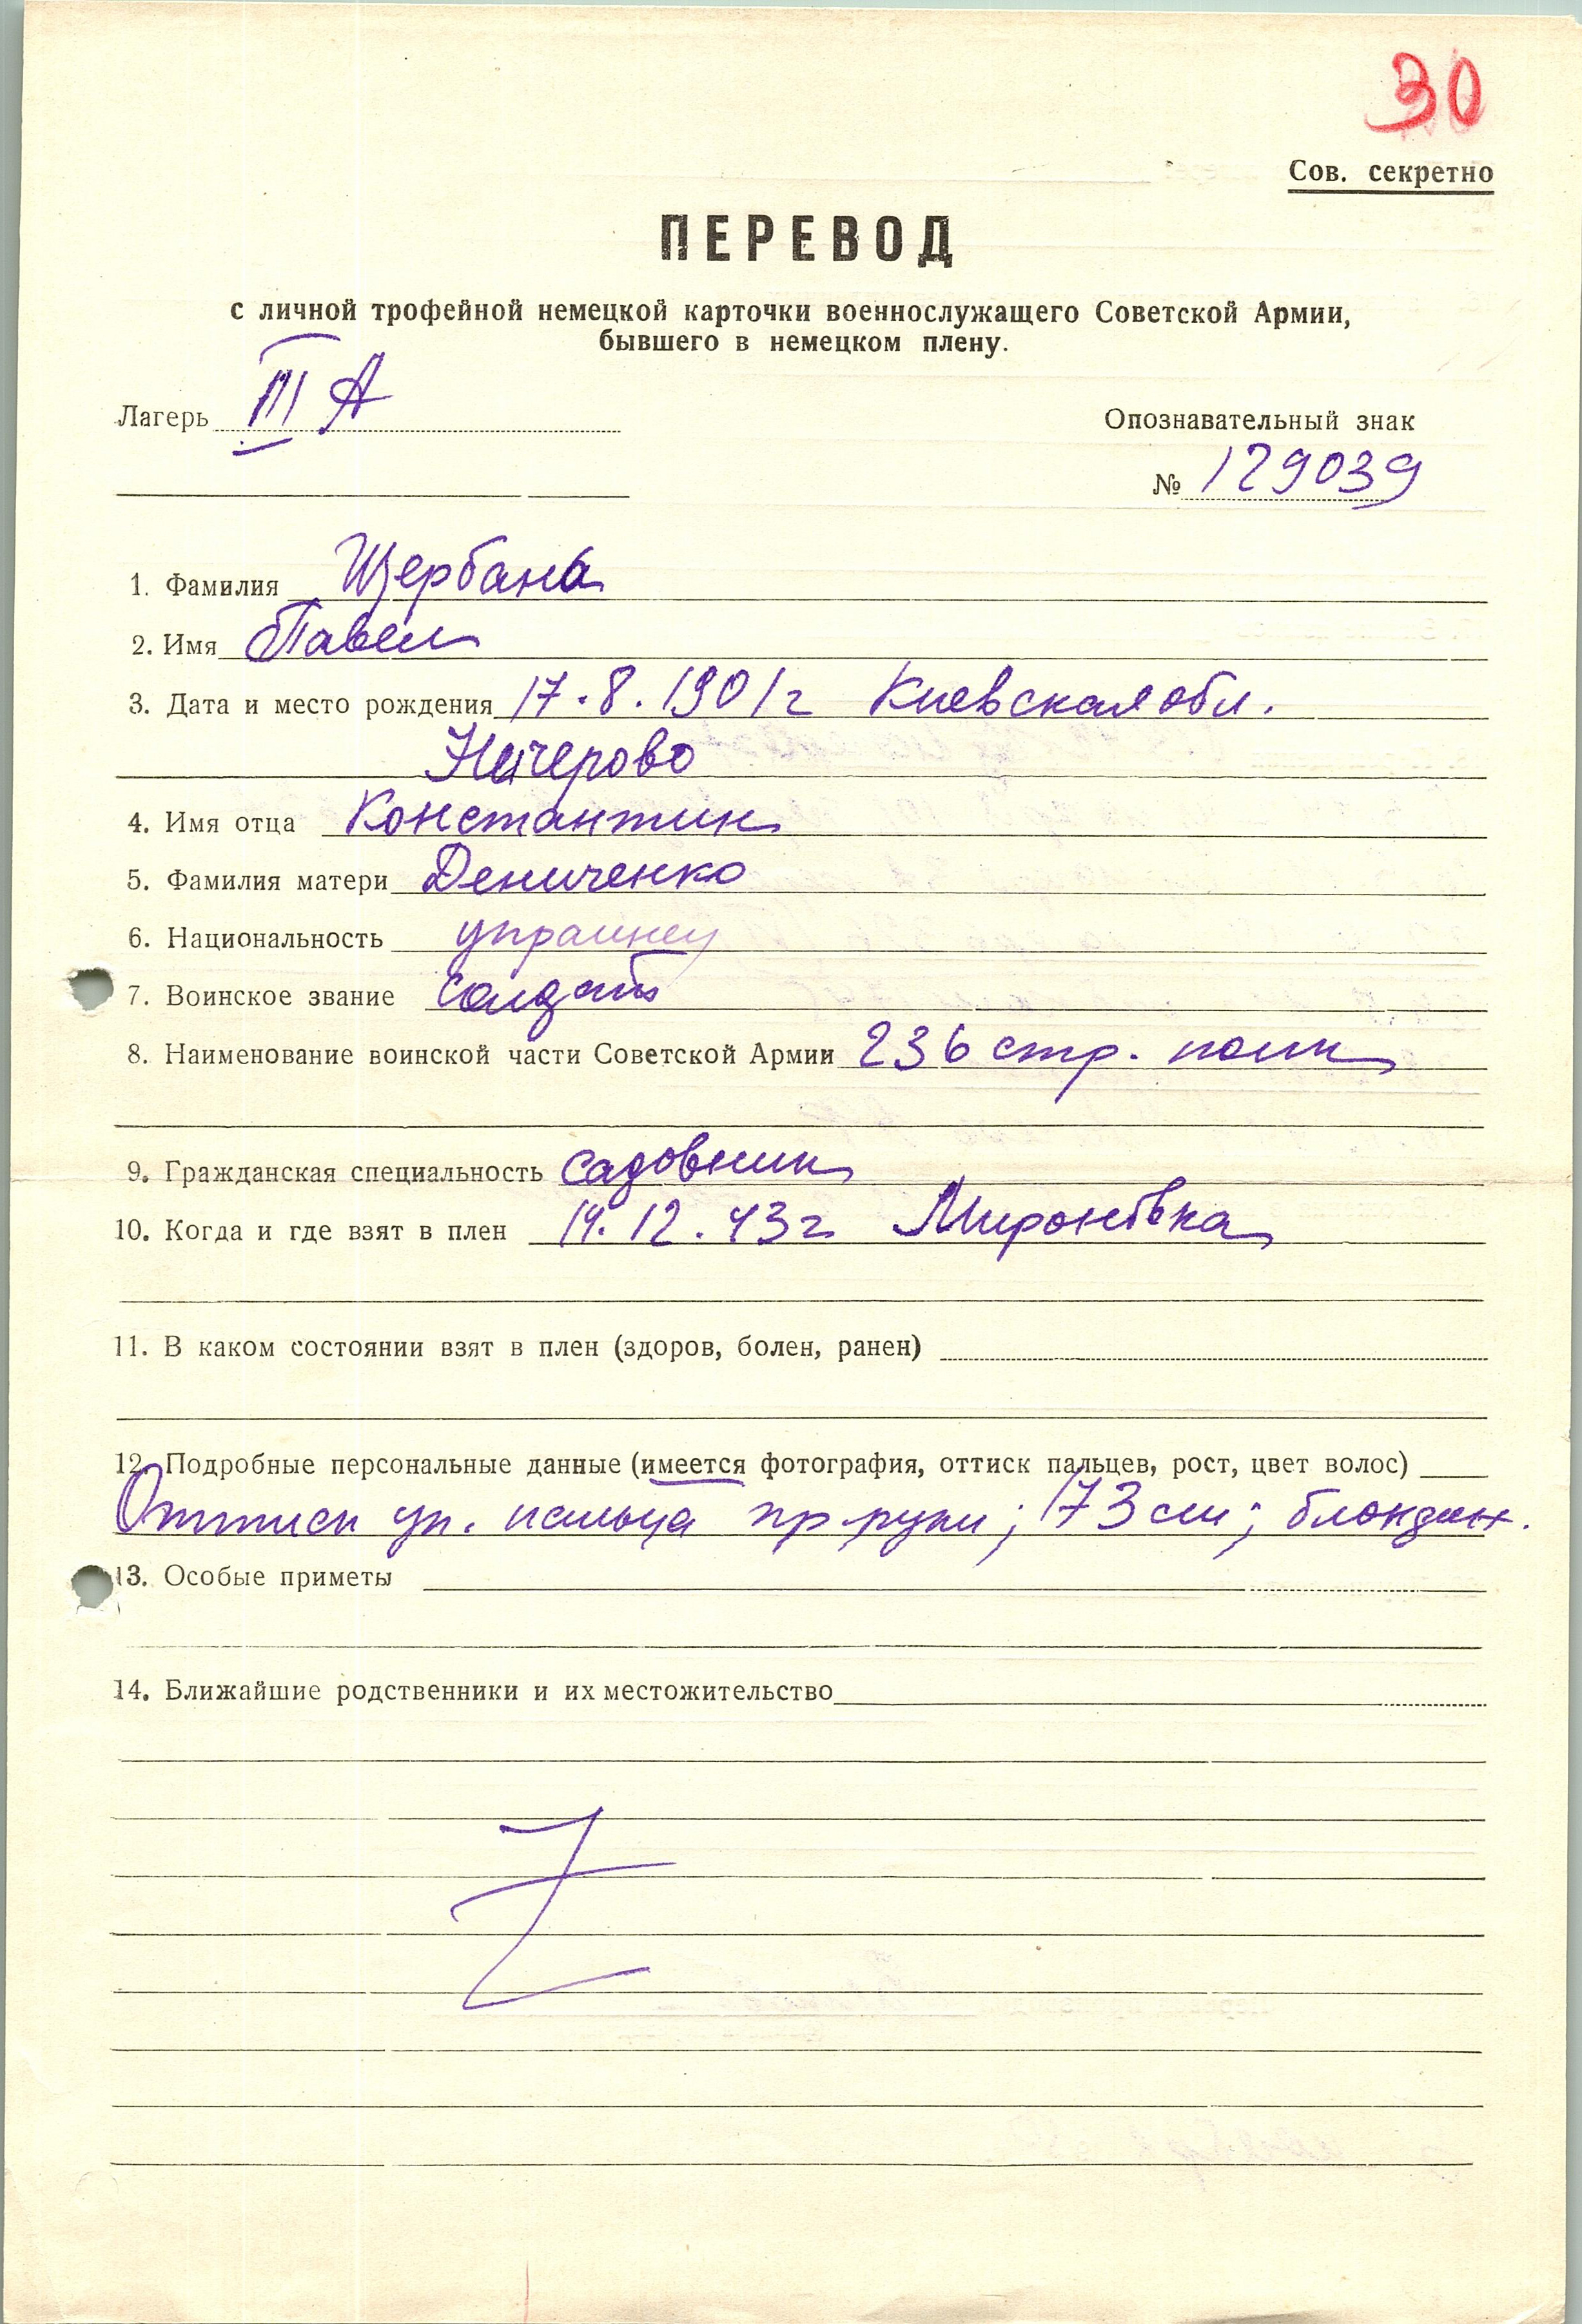 30
Сов. секретно
ПЕРЕВОД
с личной трофейной немецкой карточки военнослужащего Советской Армии,
бывшего в немецком плену.
Лагерь III А
Опознавательный знак
№ 129039
1. Фамилия Щербана
2. Имя Павел
3. Дата и место рождения 17.8.1901г Киевская обл.
4. Имя отца Константин
5. Фамилия матери Дениченко
6. Национальность украинец
7. Воинское звание солдат
8. Наименование воинской части Советской Армии 236 стр. полк
9. Гражданская специальность садовник
10. Когда и где взят в плен 14.12.43г Мироновка
11. В каком состоянии взят в плен (здоров, болен, ранен)
12. Подробные персональные данные (имеется фотография, оттиск пальцев, рост, цвет волос)
Оттиск ук. пальца пр руки; 173 см; блондин.
13. Особые приметы
14. Ближайшие родственники и их местожительство